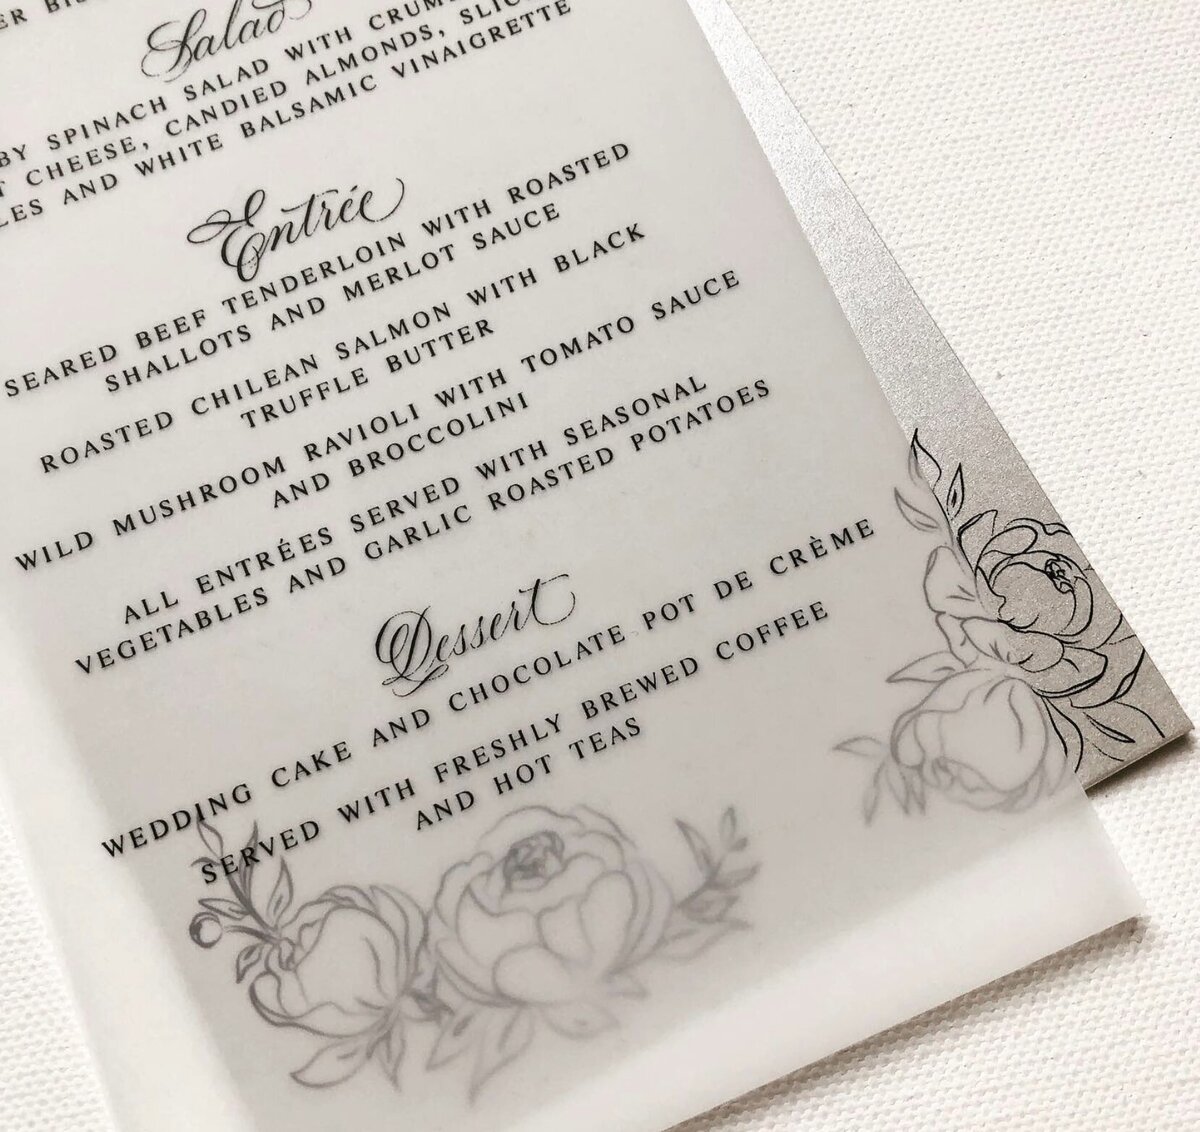 Salad
SPINACH SALAD WITH
CHEESE, CANDIED ALMONDS,
AND WHITE BALSAMIC VINAIGRETTE
Entrée
SEARED BEEF TENDERLOIN WITH ROASTED
SHALLOTS AND MERLOT SAUCE
ROASTED CHILEAN SALMON WITH BLACK
TRUFFLE BUTTER
WILD MUSHROOM RAVIOLI WITH TOMATO SAUCE
AND BROCCOLINI
ALL ENTRÉES SERVED WITH SEASONAL
VEGETABLES AND GARLIC ROASTED POTATOES
Dessert
WEDDING CAKE AND CHOCOLATE POT DE CRÈME
SERVED WITH FRESHLY BREWED COFFEE
AND HOT TEAS